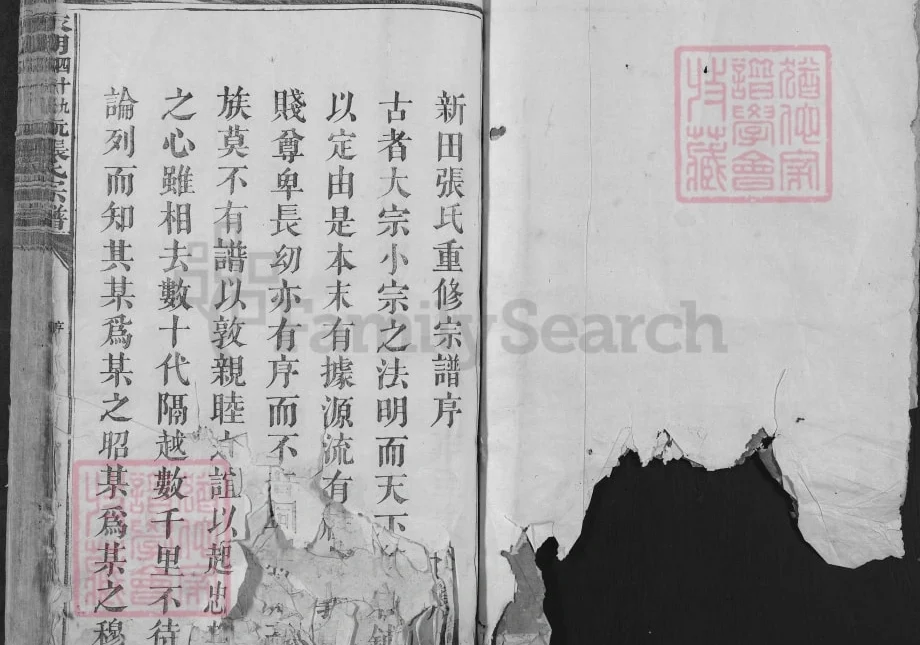 新田張氏重修宗譜序
古者大宗小宗之法明而天下
以定由是本末有據源流有
賤尊卑長幼亦有序而不
族莫不有譜以敦親睦之誼以起忠
之心雖相去數十代隔越數千里不待
論列而知其某爲某之昭某爲某之穆
張氏宗譜
序
譜學會
特藏
FamilySearch